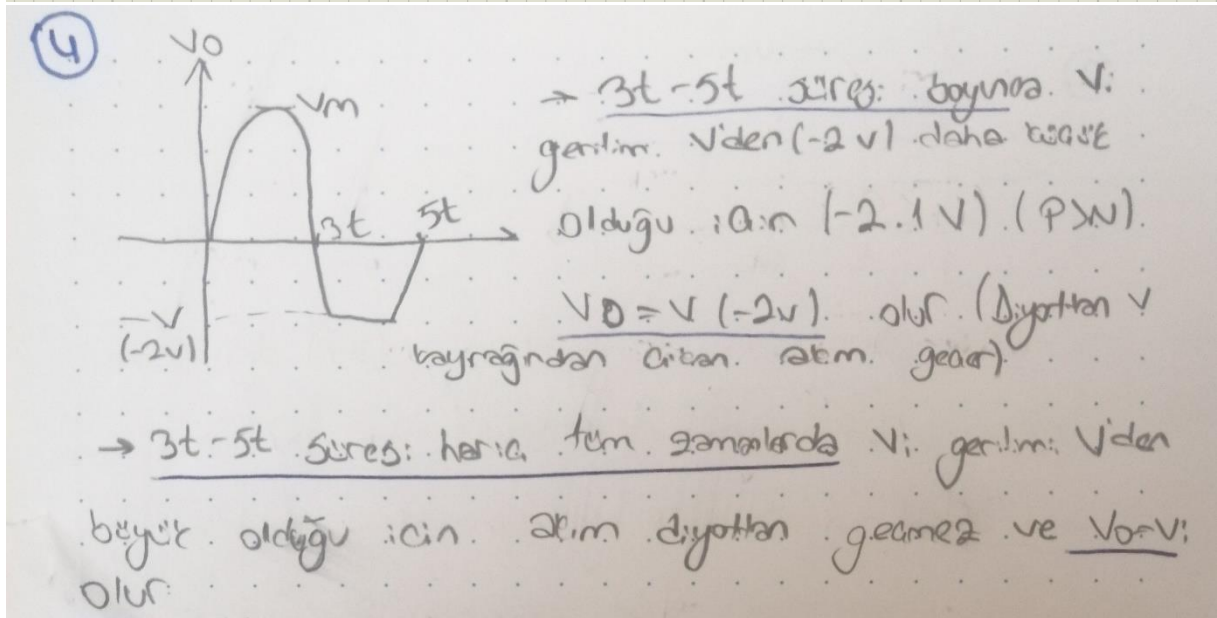 4
Vo
Vm
3t
5t
-V
(-2v)
→ 3t-5t süresi boyunca Vi
gerilim V'den (-2v) daha küçük
Olduğu için (-2.1V). (P>N).
VO = V (-2v) olur. (Diyottan V
kaynağından çıkan akım geçer).
→ 3t-5t süresi hariç tüm zamanlarda Vi gerilimi V'den
büyük olduğu için akım diyottan geçmez ve Vo=Vi
Olur.